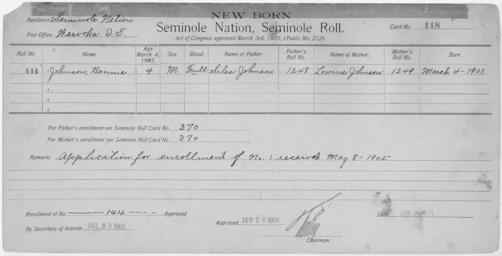 NEW BORN
Residence: Seminole Nation
Seminole Nation, Seminole Roll.
Card No. 118
Post Office: Wewoka I.T.
Act of Congress approved March 3rd, 1905, (Public No. 212).
Roll No. Name Age March 4, 1905. Sex Blood. Name of Father. Father's Roll No. Name of Mother. Mother's Roll No. Born.
144 Johnson, Bennie 4 M Full Silas Johnson 1248 Lowina Johnson 1249 March 4-1901
For Father's enrollment see Seminole Roll Card No. 370
For Mother's enrollment see Seminole Roll Card No. 370
Remarks Application for enrollment of No. 1 received May 8-1905
Enrollment of No. 144 Approved
By Secretary of Interior JUL 22 1905
Approved 1905
Chairman.
Date